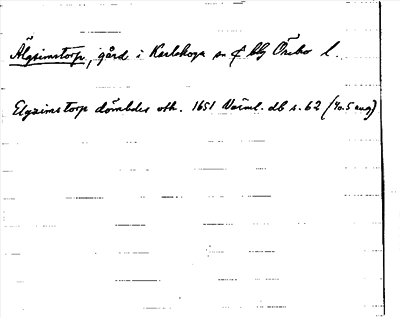 Älgsimstorp, gård i Karlskoga sn ₵ blg Örebro l.
Elgzimstorp dömbdes oth. 1651 Värml. db s. 62 (to. 5 aug)